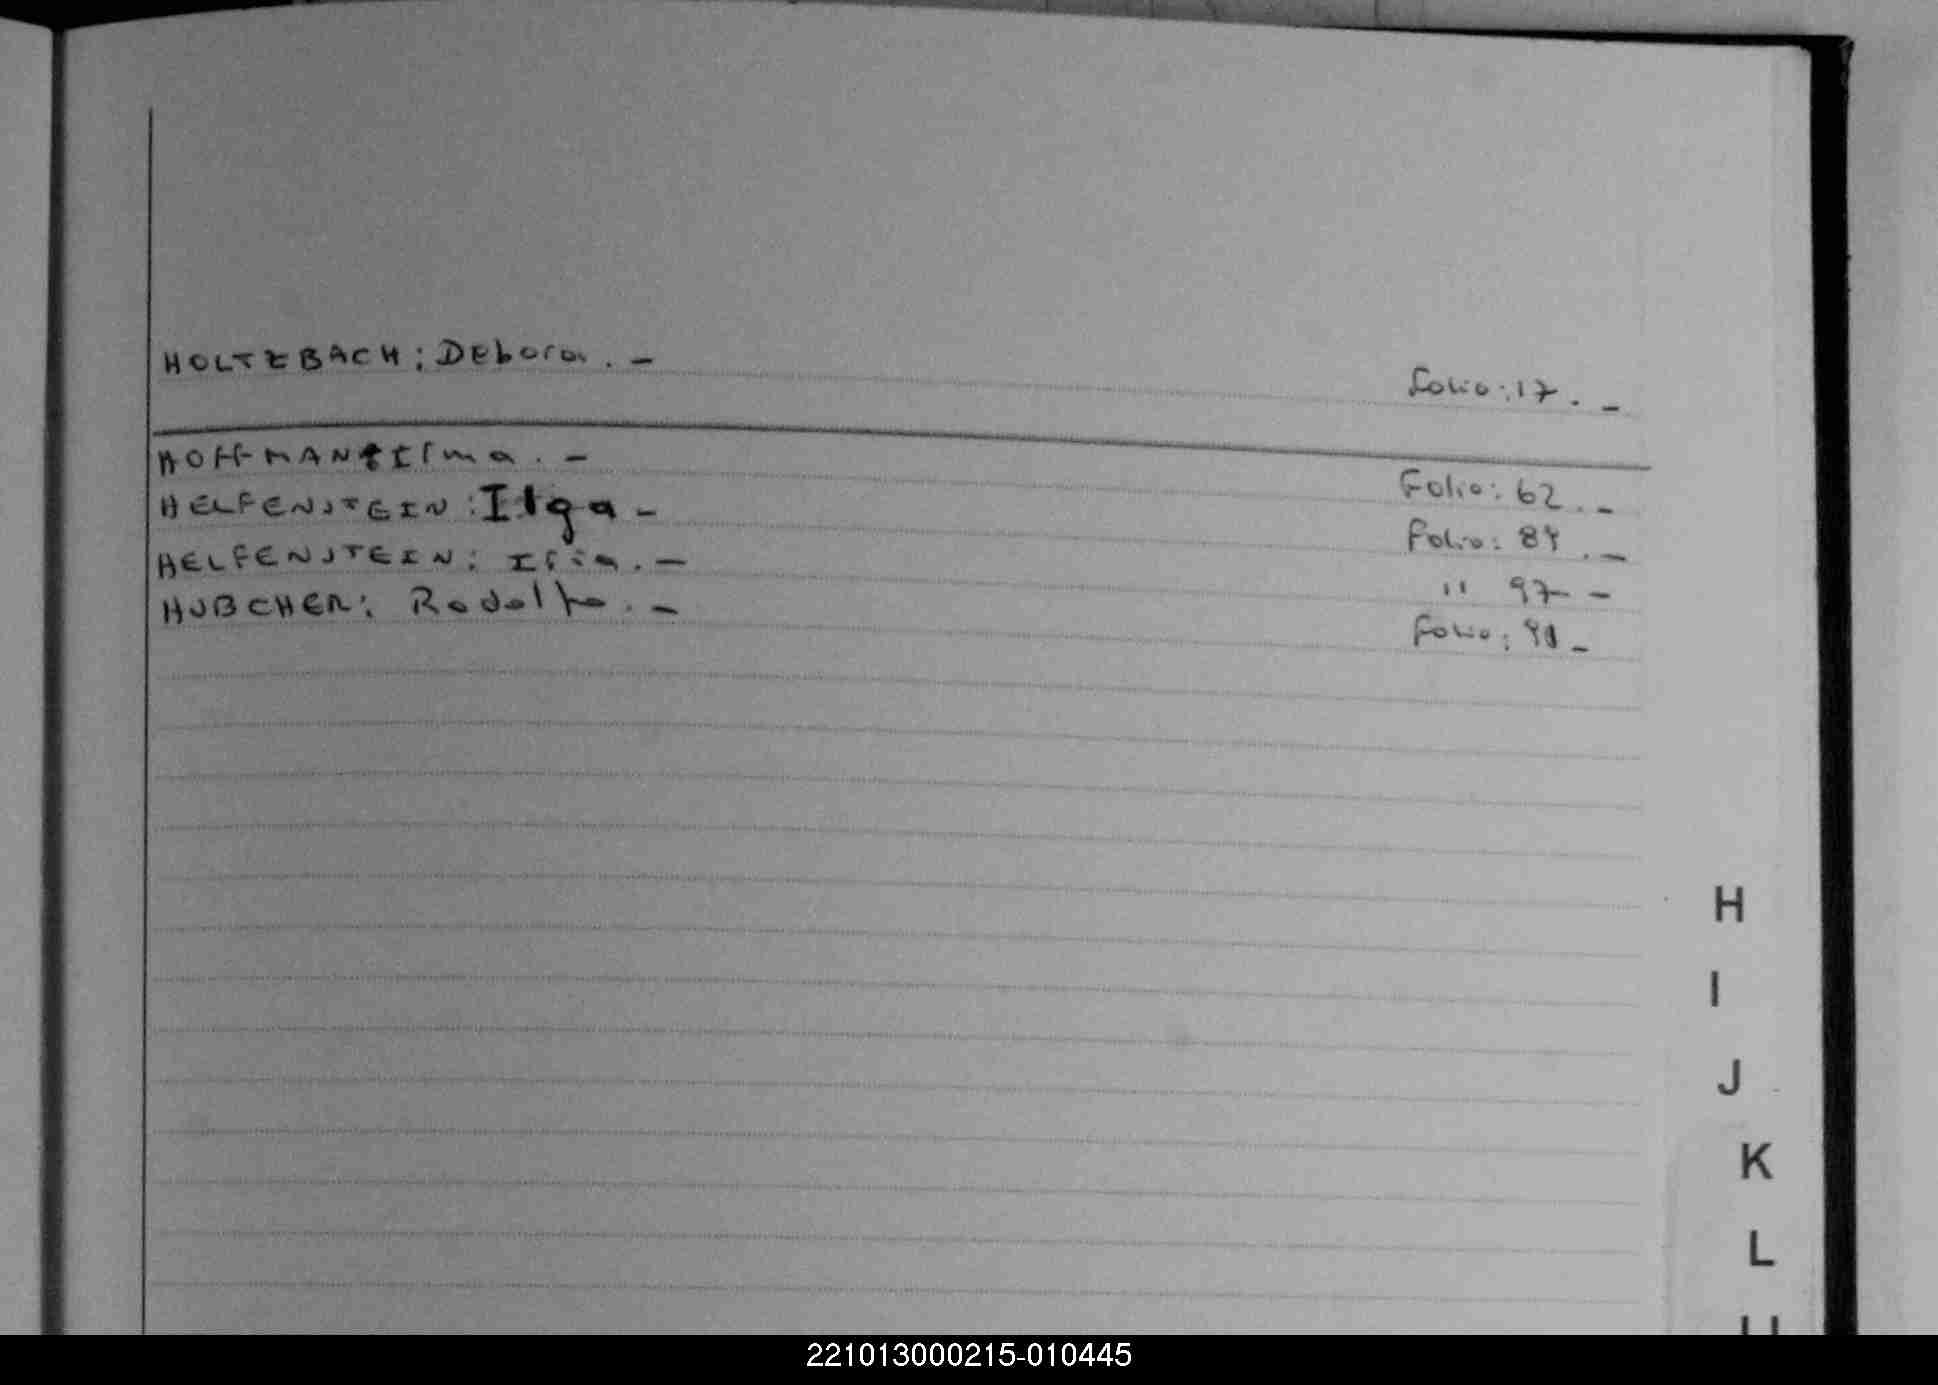 HOLTZBACH: Debora. - Folio: 17. -
HOFFMAN: Irma. - Folio: 62. -
HELFENSTEIN: Ilga - Folio: 84. -
HELFENSTEIN: - " 97 -
HUBCHER: Rodolfo. - Folio: -
H
I
J
K
L
221013000215-010445